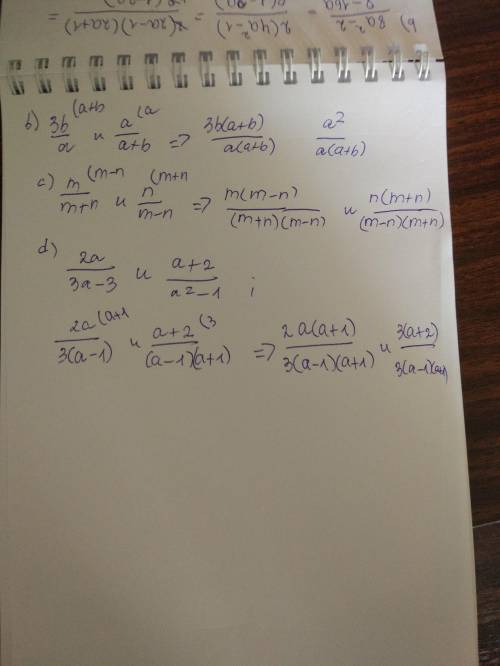 b) 8a²-2 / a-16a = 2(4a²-1) / = 2(2a-1)(2a+1) / =
b) 3b/a (a+b и a/(a+b) (a => 3b(a+b)/a(a+b) a²/a(a+b)
c) m/(m+n) (m-n и n/(m-n) (m+n => m(m-n)/(m+n)(m-n) и n(m+n)/(m-n)(m+n)
d) 2a/(3a-3) и (a+2)/(a²-1) ;
2a/3(a-1) (a+1 и (a+2)/(a-1)(a+1) (3 => 2a(a+1)/3(a-1)(a+1) и 3(a+2)/3(a-1)(a+1)